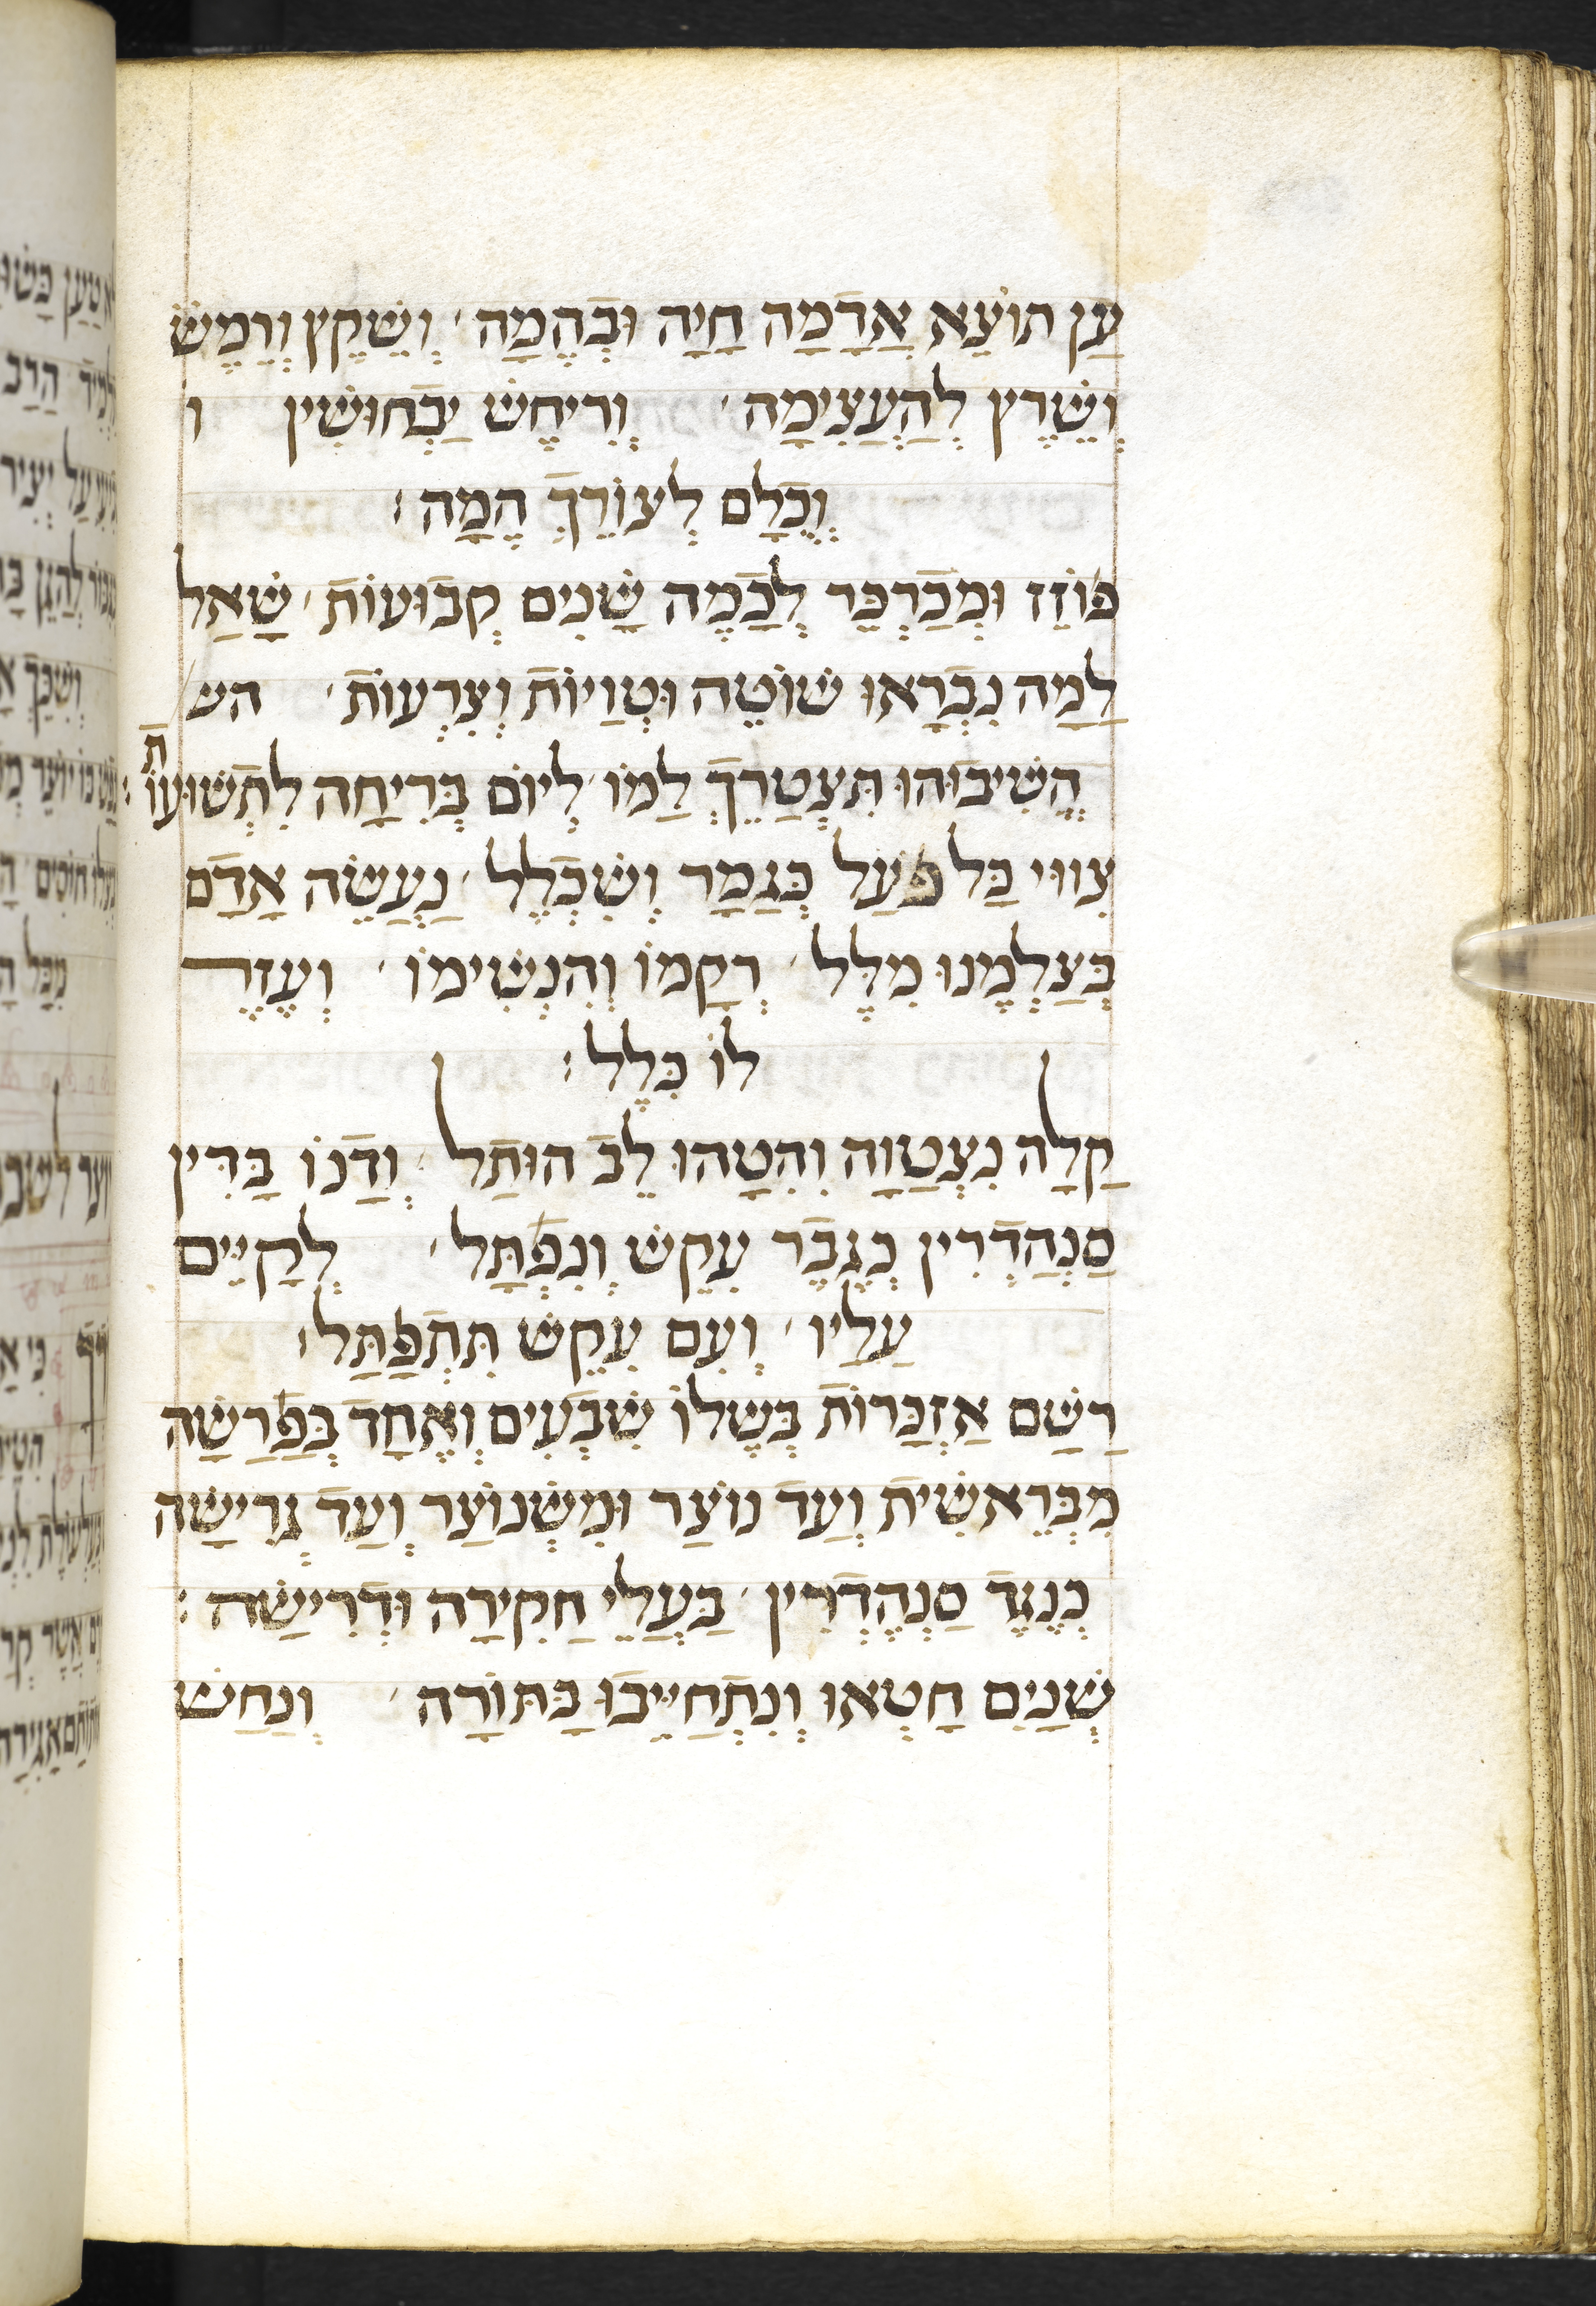 עַן תוֹצֵא אֲדָמָה חַיָה וּבְהֵמָה׳ וְשֶׁקֶץ וְרֶמֶשׂ
וְשֶׁרֶץ לְהַעֲצִימָה׳ וְרִיחֶשׁ יַבְחוּשִׁין ו
וְכֻלָם לְעוֹרֵךְ הֵמָה׃
פּוֹזֵז וּמְכַרְכֵּר לְכַמֶה שָׁנִים קְבוּעוֹת׳ שָׁאַל
לָמָה נִבְרָאוּ שׁוֹטֶה וּטְוַיוֹת וְצִרְעוֹת׳ הש
הֱשִׁיבוּהוּ תִּצְטָרֵךְ לָמוֹ׳ לְיוֹם בְּרִיחָה לִתְשׁוּעוֹת׃
צִווּי כַּל פּעַל כְּגָמַר וְשִׁכְלֵל׳ נַעֲשֶׂה אָדָם
בְּצַלְמֵנוּ מִלֵל׳ רְקָמוֹ וְהִנְשִׁימוֹ׳ וְעֵזֶר
לוֹ כִּלֵל׃
קַלָה נִצְטַוָה וְהִטָהוּ לֵב הוּתַל׳ וְדָנוֹ בַּדִין
סַנְהֶדְרִין כְגֶבֶר עִקֵשׁ וְנִפְתָּל׳ לְקַיֵים
עָלָיו׳ וְעִם עִקֵשׁ תִּתְפַּתָּל׃
רָשַׁם אַזְכָּרוֹת בְּשֶׁלוֹ שִׁבְעִים וְאֶחָד בְּפַרָשָׁה
מִבְּרֵאשִׁית וְעַד נוֹצַר וּמִשְׁנוֹצַר וְעַד גְרִישָׁה
כְּנֶגֶד סַנְהֶדְרִין׳ בַּעֲלֵי חֲקִירָה וּדְרִישָׁה׃
שְׁנַיִם חָטְאוּ וְנִתְחַיְיבוּ בַּתּוֹרָה׳ וְנַחַשׁ